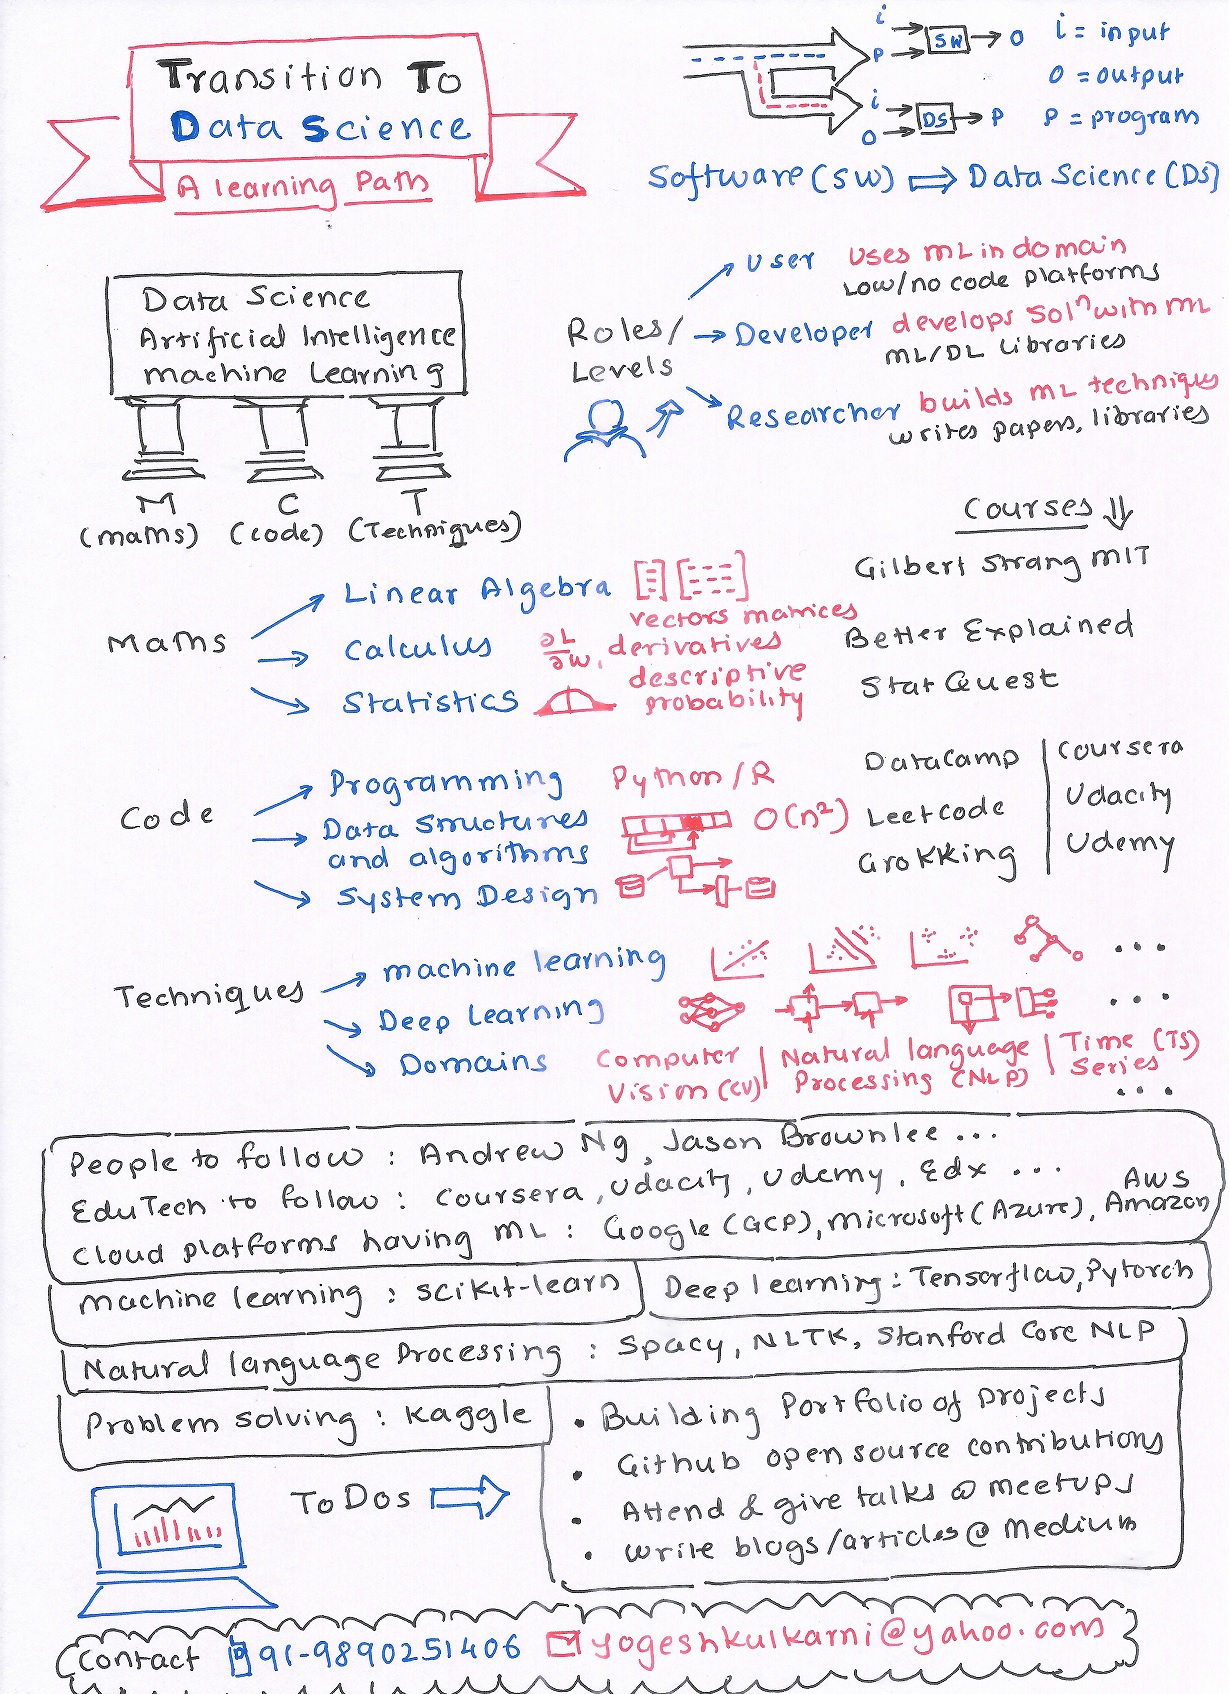 Transition To
Data Science
A learning Path
i
P
SW
O
i = input
O = output
P = program
i
O
DS
P
Software (SW) ⇒ Data Science (DS)
Data Science
Artificial Intelligence
Machine Learning
M
(maths)
C
(code)
T
(Techniques)
Roles/
Levels
User uses ML in domain
Low/no code platforms
Developer develops Solⁿ with ML
ML/DL Libraries
Researcher builds ML techniques
writes papers, libraries
Courses ⇓
Maths
Linear Algebra
vectors matrices
Gilbert Strang MIT
Calculus ∂L/∂w, derivatives
Better Explained
Statistics descriptive
probability
StatQuest
Code
Programming Python/R
Data Structures
and algorithms
O(n²)
System Design
DataCamp
Leetcode
Grokking
Coursera
Udacity
Udemy
Techniques
machine learning ...
Deep Learning ...
Domains
Computer
Vision (CV)
Natural language
Processing (NLP)
Time (TS)
Series
...
People to follow : Andrew Ng, Jason Brownlee ...
EduTech to follow : Coursera, Udacity, Udemy, Edx ...
Cloud platforms having ML : Google (GCP), Microsoft (Azure), AWS
Amazon
Machine learning : scikit-learn
Deep learning : Tensorflow, Pytorch
Natural language Processing : Spacy, NLTK, Stanford Core NLP
Problem solving : Kaggle
ToDos
• Building Portfolio of projects
• Github open source contributions
• Attend & give talks @ meetups
• write blogs/articles @ Medium
Contact 91-9890251406 yogeshkulkarni@yahoo.com